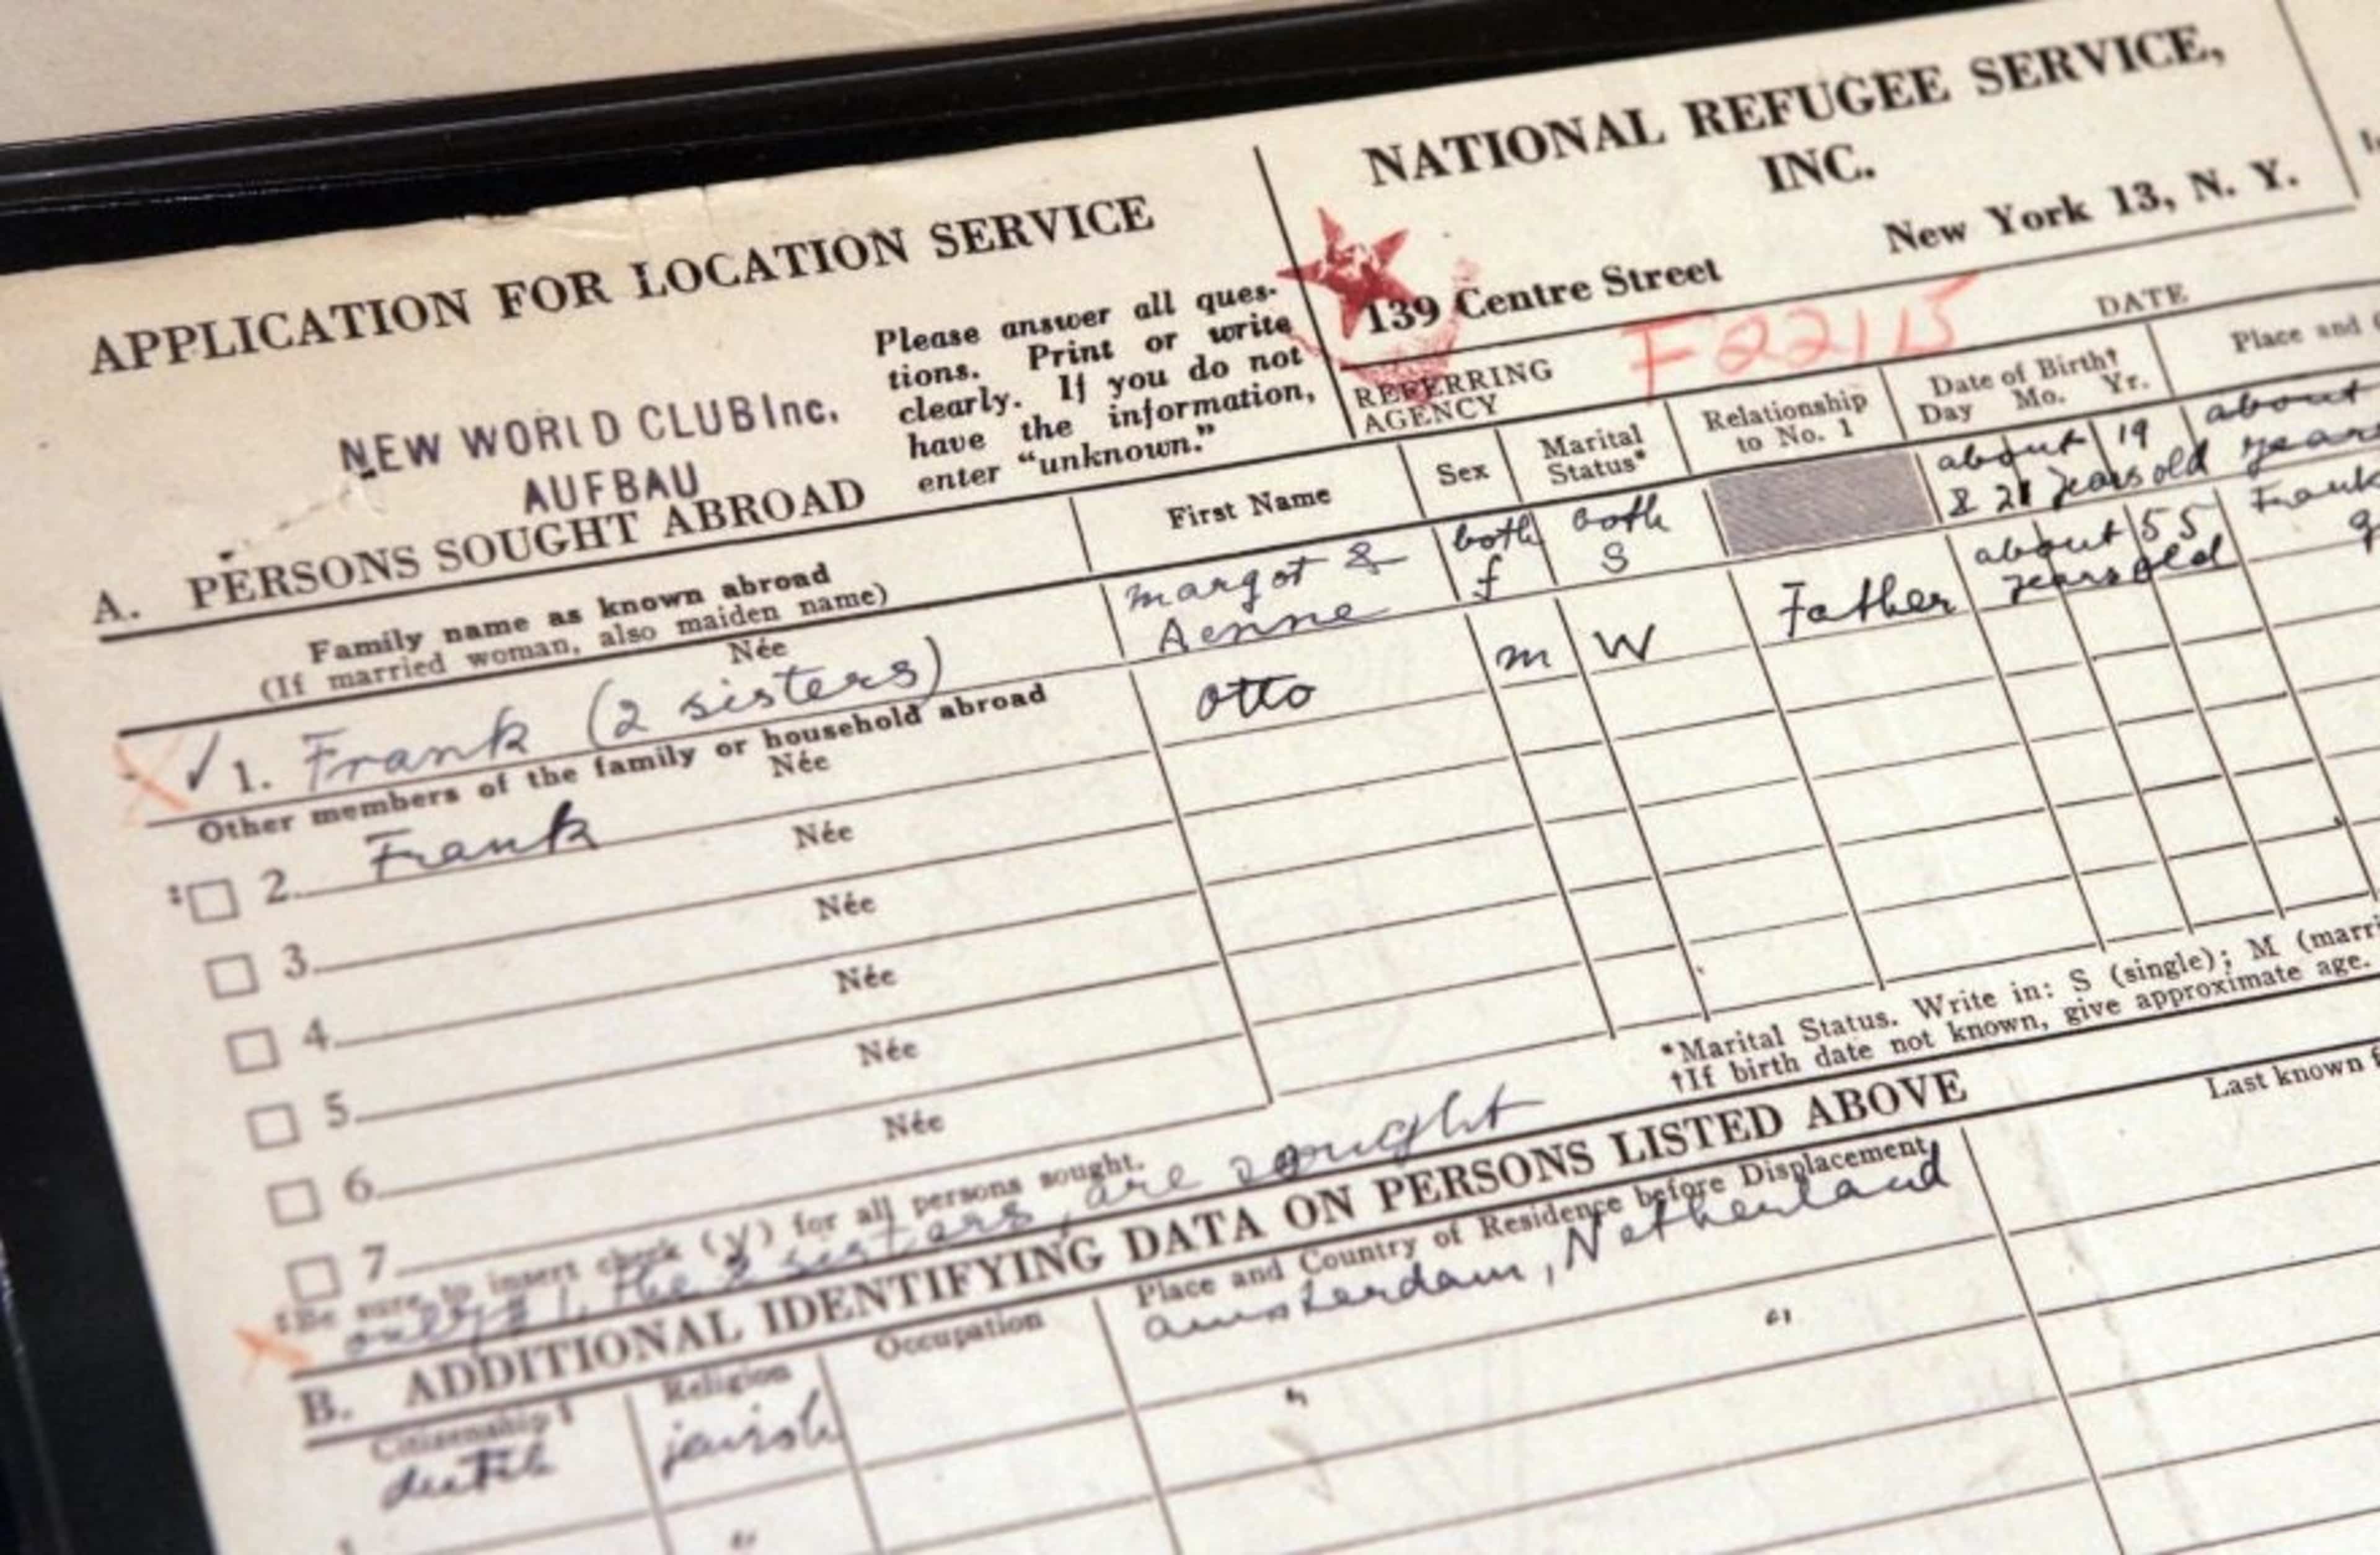 APPLICATION FOR LOCATION SERVICE
NEW WORLD CLUB Inc.
AUFBAU
Please answer all ques-
tions. Print or write
clearly. If you do not
have the information,
enter “unknown.”
NATIONAL REFUGEE SERVICE,
INC.
139 Centre Street
New York 13, N. Y.
REFERRING
AGENCY
F22115
DATE
A. PERSONS SOUGHT ABROAD
Family name as known abroad
(If married woman, also maiden name)
First Name
Sex
Marital
Status*
Relationship
to No. 1
Date of Birth†
Day Mo. Yr.
Place and
Née
✓ 1. Frank (2 sisters)
margot &
Aenne
both
f
both
S
about 19
& 21 years old
about
years
Other members of the family or household abroad
Née
‡ 2. Frank
Otto
m
W
Father
about 55
years old
Née
3.
Née
4.
Née
5.
Née
6.
Née
7.
‡Be sure to insert check (√) for all persons sought.
the 2 sisters, are sought
*Marital Status. Write in: S (single); M (marri
†If birth date not known, give approximate age.
B. ADDITIONAL IDENTIFYING DATA ON PERSONS LISTED ABOVE
Citizenship
Religion
Occupation
Place and Country of Residence before Displacement
Last known
jewish
Amsterdam, Netherland
"
"
"